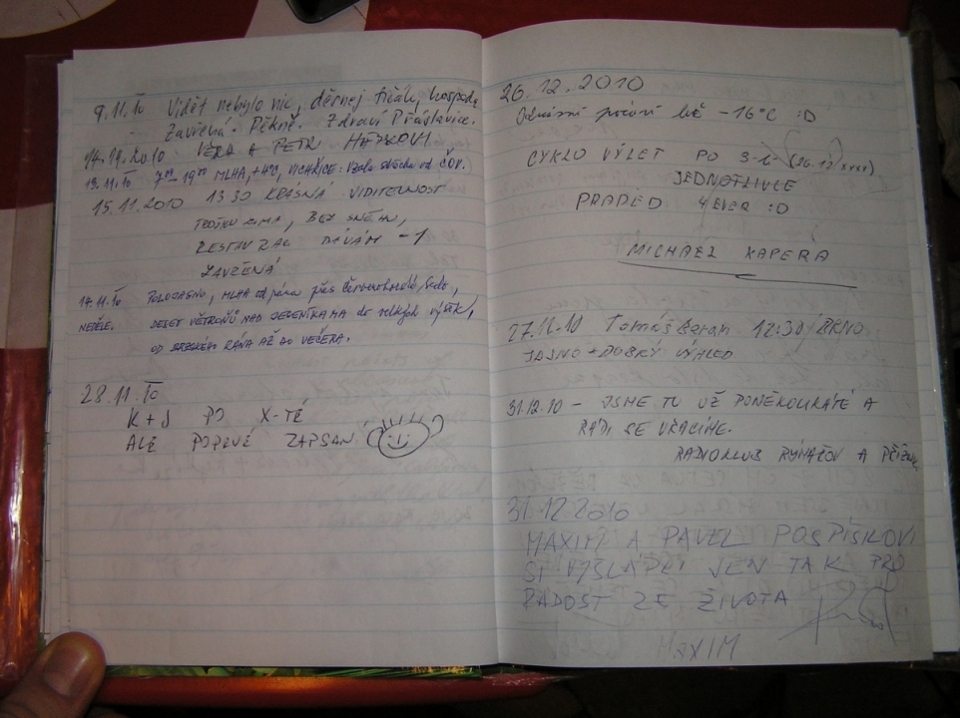 9.11.10 Vidět nebylo nic, děrnej tričko, hospoda
Zavřená. Pěkně. Zdraví Přáslavice.
14.11.2010 VĚRA A PETR
13.11.10 7⁰⁰-19⁰⁰ MLHA, +4°C, VICHŘICE: od ČOV.
15.11.2010 13 30 KRÁSNÁ VIDITELNOST
TROŠKU ZIMA, BEZ SNĚHU,
DÁVÁM -1
ZAVŘENÁ
14.11.10 POLOJASNO, MLHA od přes
NEDĚLE. DESET VĚTROŇŮ NAD JESENÍKAMA do velkých výšek,
OD RÁNA AŽ DO VEČERA.
28.11.10
K+J PO X-TÉ
ALE POPRVÉ ZAPSANÍ
26.12.2010
počasí -16°C :D
CYKLO VÝLET PO 3-L (26.12
JEDNOTLIVCE
PRADĚD 4EVER :D
MICHAEL KAPERA
27.11.10 Tomáš Beran 12:30/BRNO
JASNO + DOBRÝ VÝHLED
31.12.10 - JSME TU UŽ PONĚKOLIKÁTÉ A
RÁDI SE VRACÍME.
RADIOKLUB RÝMAŘOV A
31.12.2010
MAXIM A PAVEL POSPÍŠILOVI
SI VYŠLÁPLI JEN TAK PRO
RADOST ZE ŽIVOTA
MAXIM